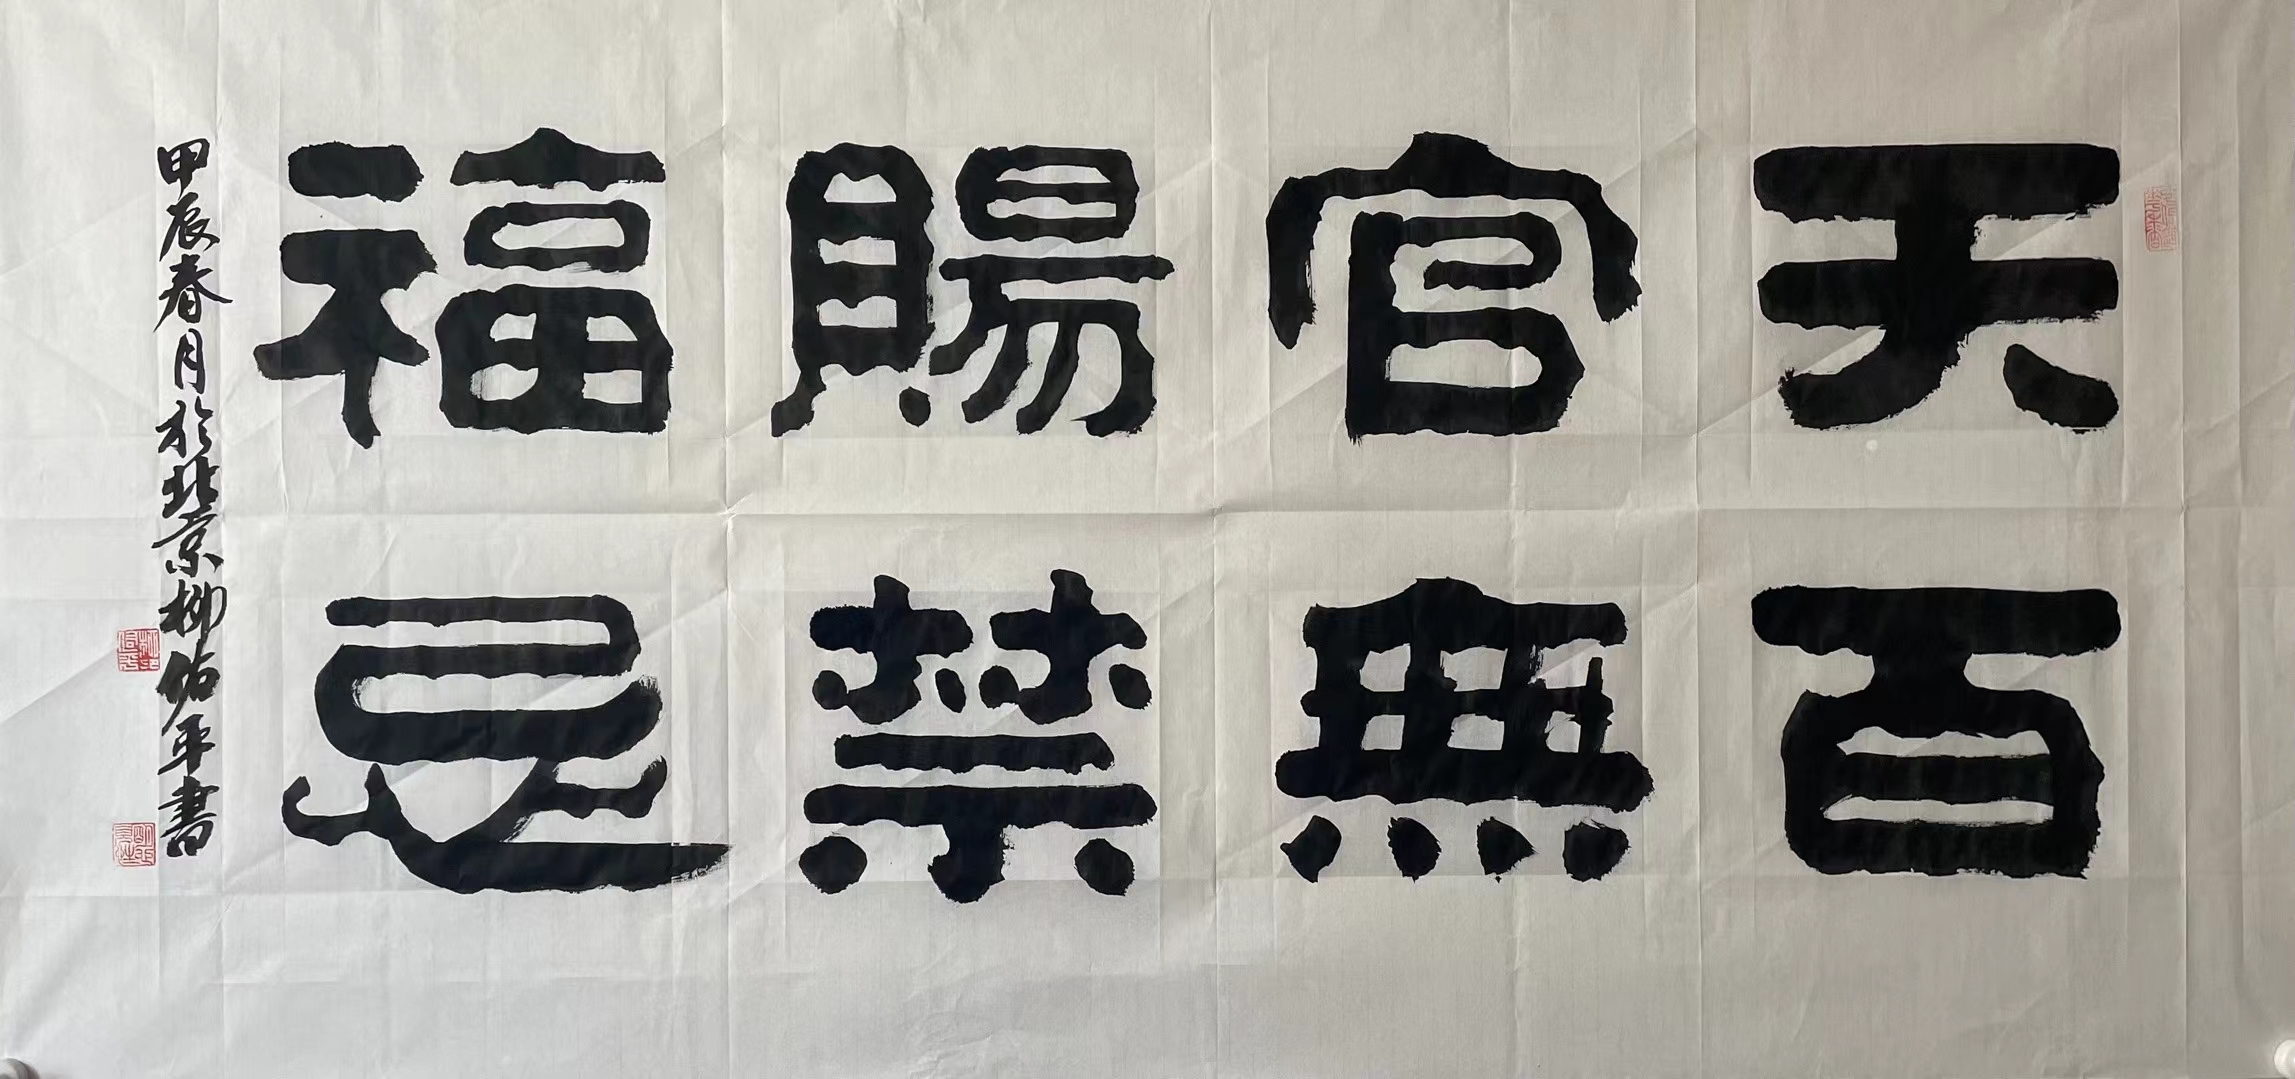 天官賜福
百無禁忌
甲辰春月於北京柳佑平書